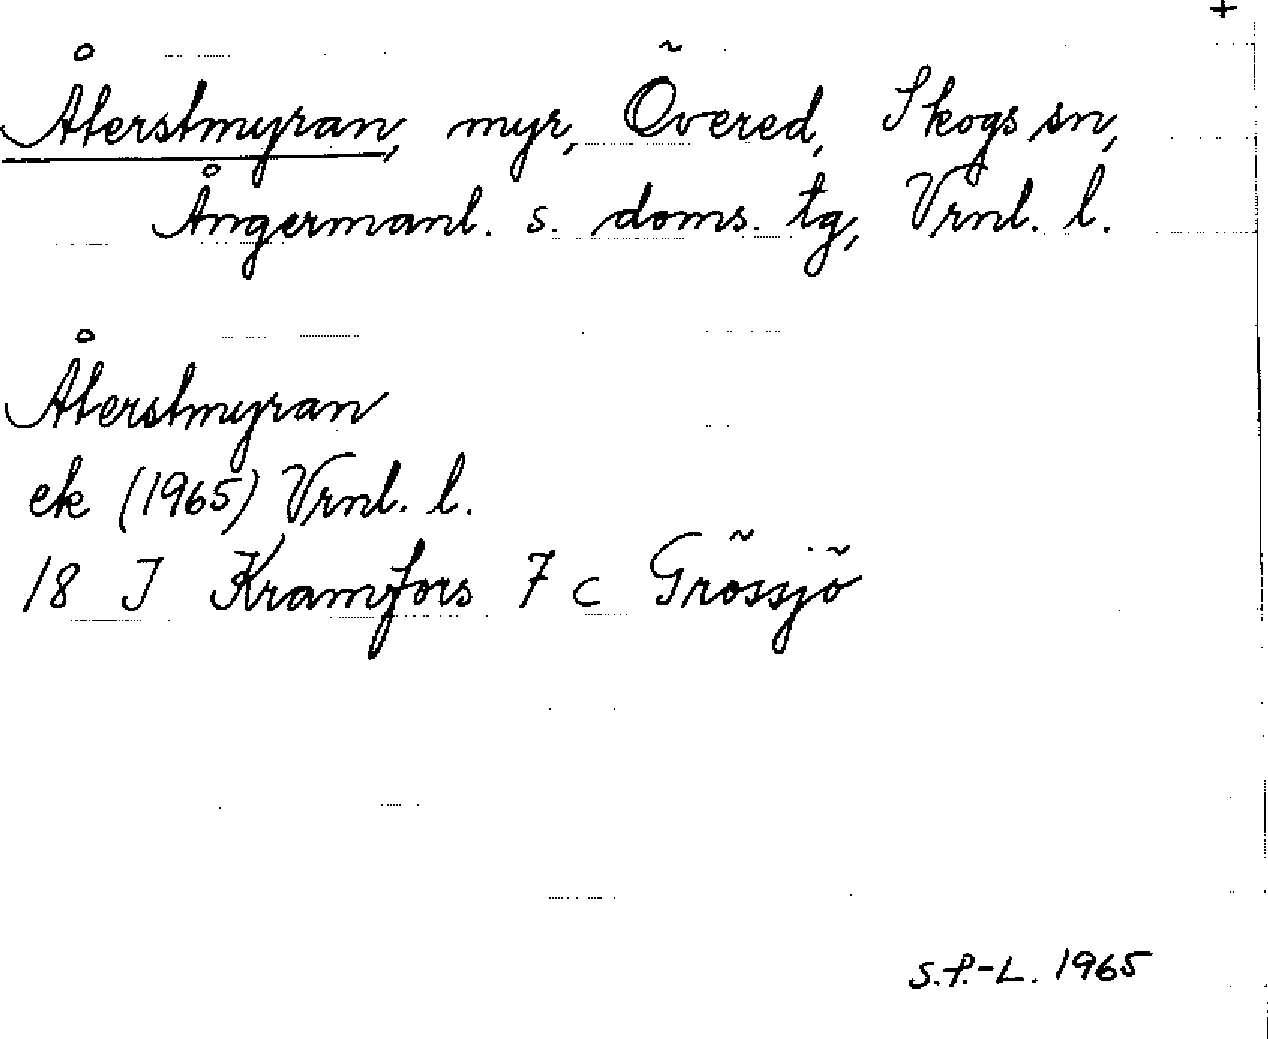 +
Återstmyran, myr, Övered, Skogs sn,
Ångermanl. s. doms. tg, Vrnl. l.
Återstmyran
ek (1965) Vrnl. l.
18 J Kramfors 7 c Grössjö
S.P.-L. 1965